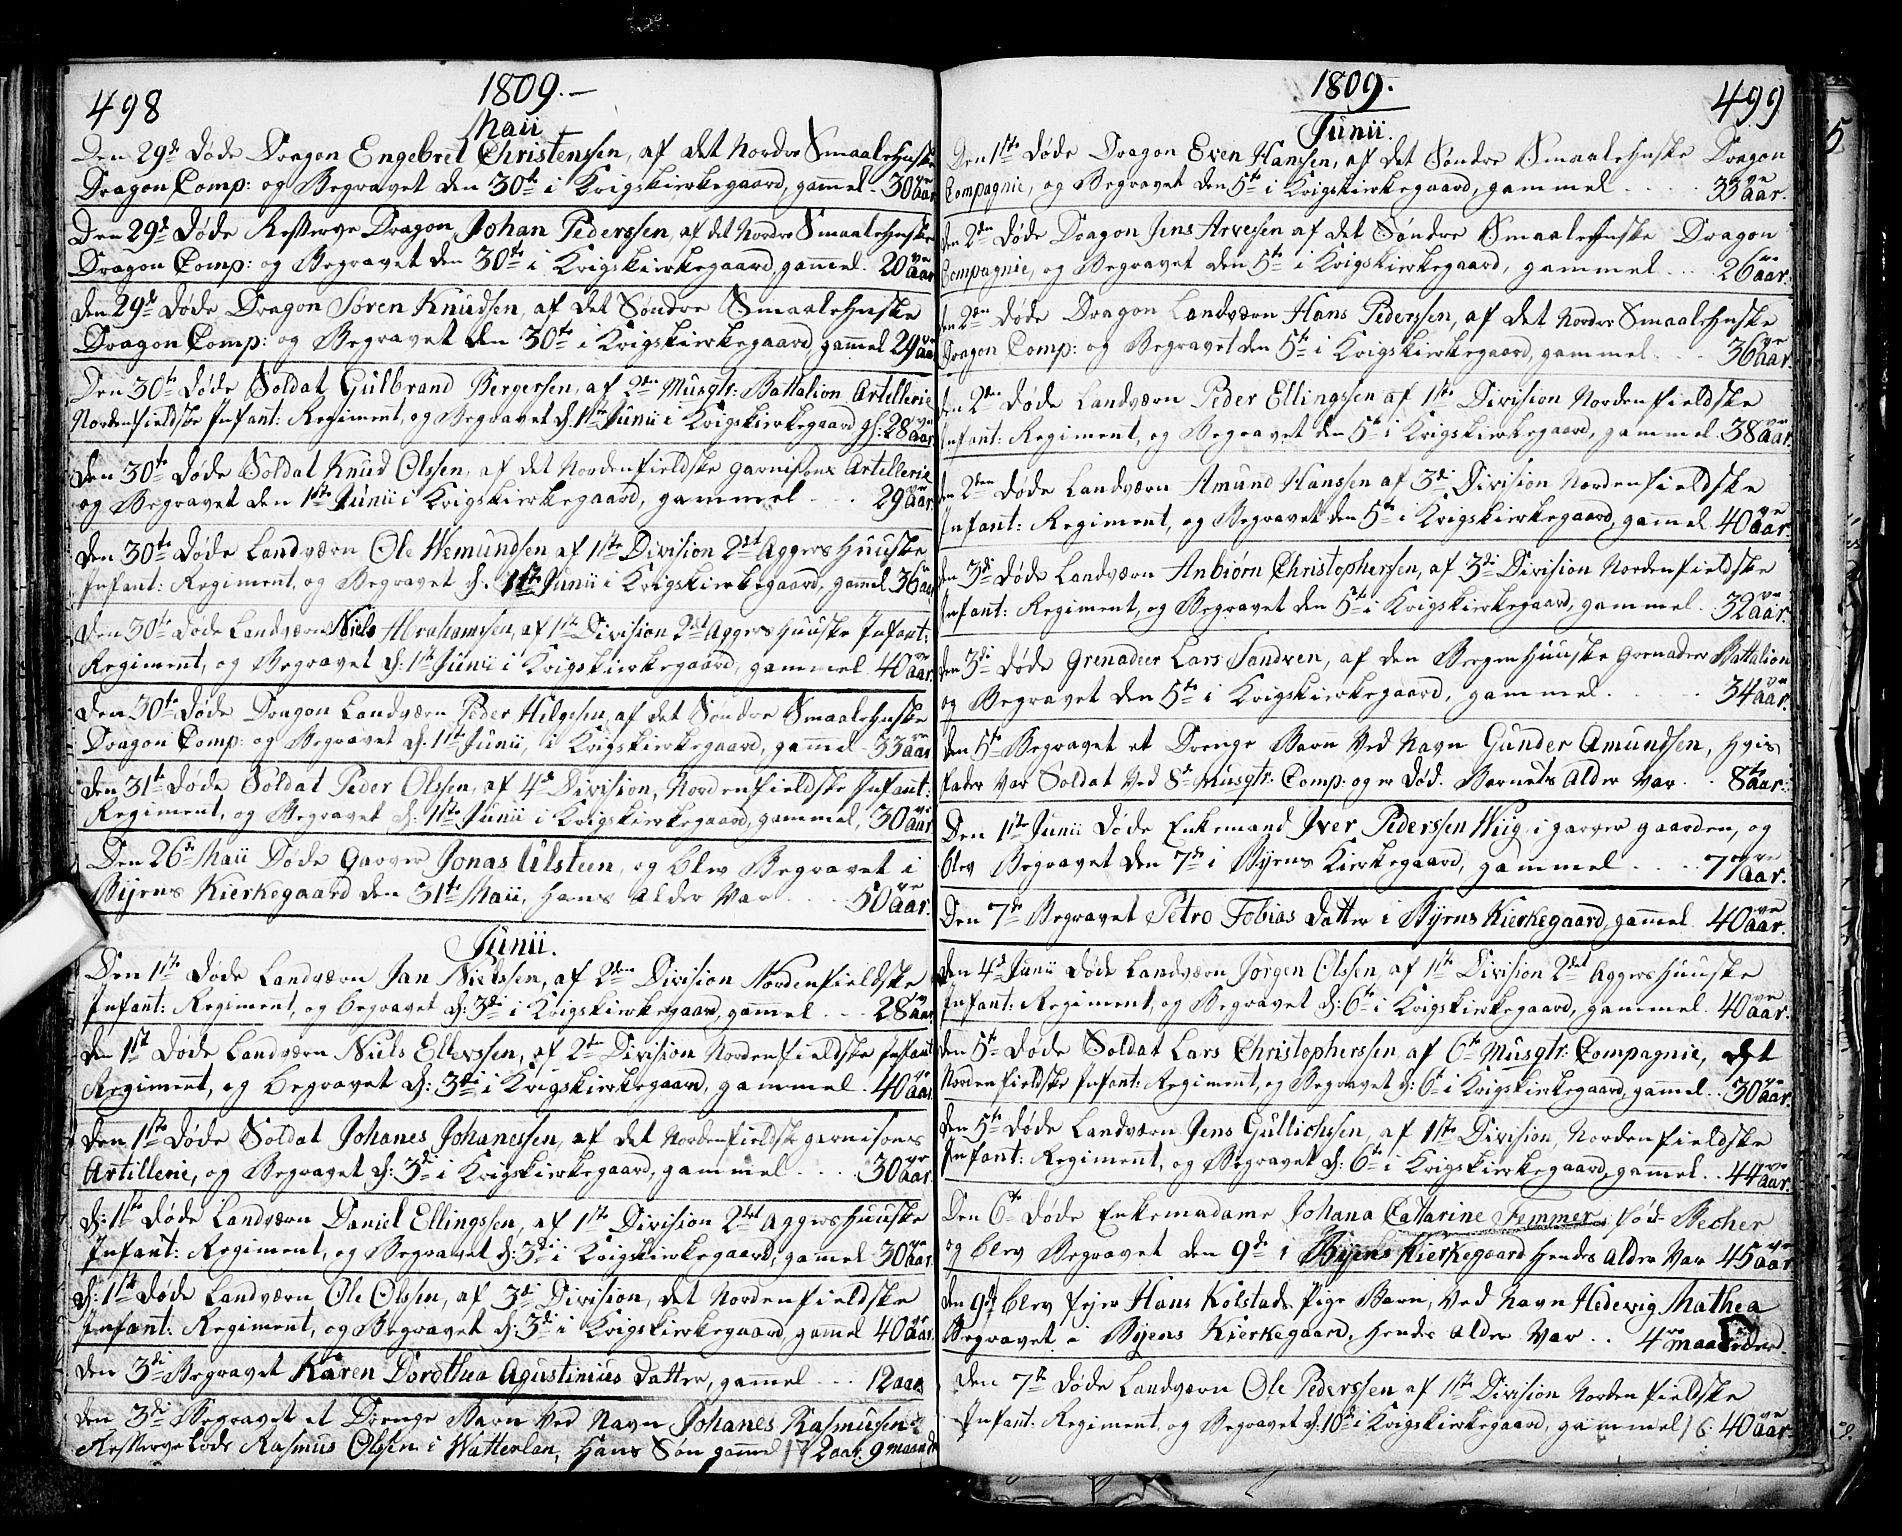 498
1809.-
Maii
Den 29de Døde Dragon Engebret Christenssen, af det Nordre Smaalehnske
Dragon Comp: og Begravet den 30te i Krigskierkegaard, gammel. 30ve aar
Den 29d Døde Resserve Dragon Johan Pederssen, af det Nordre Smaalehnske
Dragon Comp: og Begravet den 30te i Krigskierkegaard, gamel. 20ve aar
den 29d Døde Dragon Søren Knudsen, af det Søndre Smaalehnske
Dragon Comp: og Begravet den 30te i Krigskierkegaard, gamel 29ve aar
Den 30te Døde Soldat Gulbrand Bergersen, af 2den Musqtr: Battalion Artellerie
Nordenfieldske Infant: Regiment, og Begravet d. 1ste Junii i Krigskierkegaard gl: 28ve aar
den 30te Døde Soldat Knud Olssen, af det Nordenfieldske garnisons Artellerie
og Begravet den 1ste Junii i Krigskierkegaard, gammel - - - 29ve aar.
den 30te Døde Landværn Ole Wemundsen af 1ste Division 2det Aggershuuske
Infant: Regiment, og Begravet d. 1ste Junii i Krigskierkegaard, gamel 36 aar
den 30te Døde Landværn Niels Abrahamssen, af 1ste Division 2det Aggershuuske Infant:
Regiment, og Begravet d: 1ste Junii i Krigskierkegaard, gammel. 40ve aar.
den 30te Døde Dragon Landværn Peder Hilgesen, af det Søndre Smaalehnske
Dragon Comp: og Begravet d. 1ste Junii, i Krigskierkegaard, gamel 33 aar
den 31te Døde Soldat Peder Olssen, af 4de Division, Nordenfieldske Infant:
Regiment, og Begravet d: 1ste Junii i Krigskierkegaard, gammel, 30ve aar
Den 26de Maii Døde Garver Jonas Ulsteen, og blev Begravet i
Byens Kierkegaard den 31te Maii, hans Alder Var - - - 50ve aar.
Junii.
Den 1ste Døde Landværn Jan Nielssen, af 2den Division Nordenfieldske
Infant: Regiment, og begravet d: 3di i Krigskierkegaard, gamel - - - 28 aar
den 1st Døde Landværn Niels Ellevssen, af 2den Division Nordenfieldske Infant
Regiment, og begravet d: 3di i Krigskierkegaard, gammel. 40ve aar.
den 1ste Døde Soldat Johanes Johanessen, af det Nordenfieldsk garnisons
Artillerie, og Begravet d: 3di i Krigskierkegaard, gammel - - - 30ve aar.
d: 1ste Døde Landværn Daniel Ellingssen, af 1ste Division 2det Aggershuuske
Infant: Regiment, og Begravet d: 3di i Krigskierkegaard, gamel 30ve aar.
d: 1ste Døde Landværn Ole Olssen, af 3di Division, det Nordenfieldske
Infant: Regiment, og Begravet d: 3di i Krigskierkegaard, gamel 40ve aar.
den 3di Begravet Karen Dorothea Agustinius Datter, gamel - - - 12 aar
den 3di Begravet et Drenge Barn Ved Navn Johanes Rasmusen
Resserve Lods Rasmus Olssen i Watterlan, hans Søn gamel 2 aar. 9 maan
1809.
499
Junii.
Den 1ste Døde Dragon Even Hansen, af det Søndre Smaalehnske Dragon
Compagnie, og Begravet den 5te i Krigskierkegaard, gammel - - - - 33ve aar.
den 2den Døde Dragon Jens Arvesen af det Søndre Smaalehnske Dragon
Compagnie, og Begravet den 5te i Krigskierkegaard, gammel - - - 26ve aar.
den 2den Døde Dragon Landværn Hans Pederssen, af det Nordre Smaalehnske
Dragon Comp: og Begravet den 5te i Krigskierkegaard, gammel - - - 36ve aar.
den 2den Døde Landværn Peder Ellingssen af 1ste Division Nordenfieldske
Infant: Regiment, og Begravet den 5te i Krigskierkegaard, gammel 38ve aar.
den 2den Døde Landværn Amund Hanssen af 3di Division Nordenfieldske
Infant: Regiment, og Begravet den 5te i Krigskierkegaard, gammel 40ve aar.
den 3di Døde Landværn Anbiørn Christopherssen, af 3di Division Nordenfieldske
Infant: Regiment, og Begravet den 5te i Krigskierkegaard, gammel. 32ve aar.
den 3di Døde Grenadeer Lars Sandven, af den Bergenhuuske Grenadeer Battalion
og Begravet den 5te i Krigskierkegaard, gammel - - - - 34ve aar.
den 5te Begravet et Drenge Barn Ved Navn Gunder Amundsen, hvis
Fader Var Soldat Ved 8de Musqtr: Comp: og er Død. Barnets Alder Var - 8te aar.
Den 1ste Junii Døde Enkemand Iver Pederssen Wiig i garver gaarden, og
blev Begravet den 7de i Byens Kierkegaard, gammel - - - 77ve aar.
Den 7de Begravet Petro Tobias Datter i Byens Kierkegaard, gamel 40ve aar.
den 4de Junii Døde Landværn Jørgen Olssen, af 1ste Division 2det Aggershuuske
Infant: Regiment, og Begravet d: 6te i Krigskierkegaard, gammel. 40ve aar.
den 5te Døde Soldat Lars Christopherssen af 6te Musqtr: Compagnie, det
Nordenfieldske Infant: Regiment, og Begravet d: 6te i Krigskierkegaard, gamel. 30ve aar.
den 5te Døde Landværn Jens Gullichsen, af 1ste Division, Nordenfieldske
Infant: Regiment, og Begravet d: 6te i Krigskierkegaard, gamel. 44ve aar.
Den 6te Døde Enkemadame Johana Catarine Femmer, fød Becher
og blev Begravet den 9de i Byens Kierkegaard hendes Alder Var 45ve aar
den 9de blev Hans Kolstads Pige Barn, Ved Navn Hedevig Mathea
Begravet i Byens Kierkegaard, hendes Alder Var - - 4re maaneder
den 7de Døde Landværn Ole Pederssen af 1ste Division Nordenfieldske
Infant: Regiment, og Begravet d: 10de i Krigskierkegaard, gammel 40ve aar.